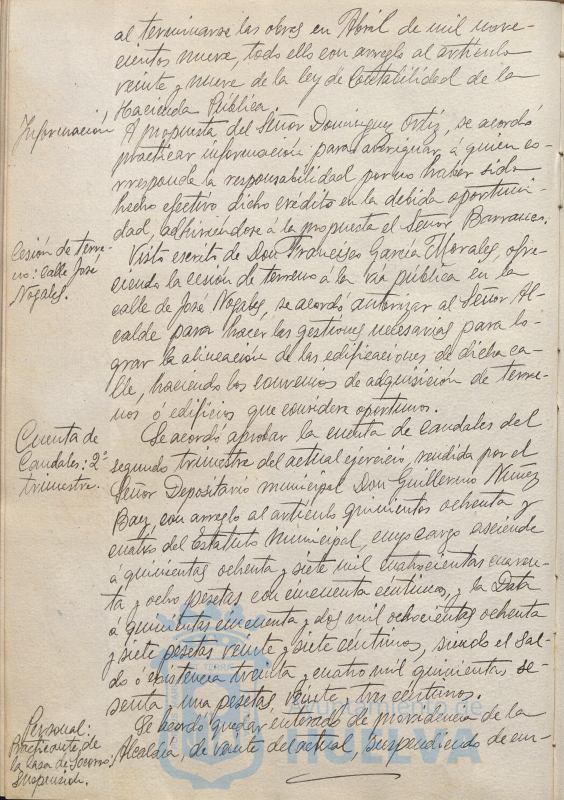 al terminarse las obras en Abril de mil nove-
cientos nueve, todo ello con arreglo al artículo
veinte y nueve de la ley de Contabilidad de la
Hacienda Pública.
Información
A propuesta del Señor Dominguez Ortiz, se acordó
practicar información para averiguar á quien co-
rresponde la responsabilidad por no haber sido
hecho efectivo dicho credito en la debida oportuni-
dad, adhiriendose á la propuesta el Señor Barranco.
Cesión de terre-
no: calle José
Nogales.
Visto escrito de Don Francisco García Morales, ofre-
ciendo la cesión de terreno á la vía pública en la
calle de José Nogales, se acordó autorizar al Señor Al-
calde para hacer las gestiones necesarias para lo-
grar la alineación de las edificaciones de dicha ca-
lle, haciendo los convenios de adquisición de terre-
nos ó edificios que considere oportunos.
Cuenta de
Caudales: 2º
trimestre.
Se acordó aprobar la cuenta de caudales del
segundo trimestre del actual ejercicio, rendida por el
Señor Depositario municipal Don Guillermo Nuñez
Baez, con arreglo al artículo quinientos ochenta y
cuatro del Estatuto Municipal, cuyo cargo asciende
á quinientas ochenta y siete mil cuatrocientas cuaren-
ta y ocho pesetas con cincuenta centimos, y la Data
á quinientas cincuenta y dos mil ochocientas ochenta
y siete pesetas veinte y siete centimos, siendo el Sal-
do ó existencia treinta y cuatro mil quinientas se-
senta y una pesetas, veinte y tres centimos.
Personal.
Practicante de
la Casa de Socorro:
Suspensión.
Se acordó quedar enterado de providencia de la
Alcaldía, de veinte del actual, suspendiendo de em-
Ayuntamiento de
HUELVA